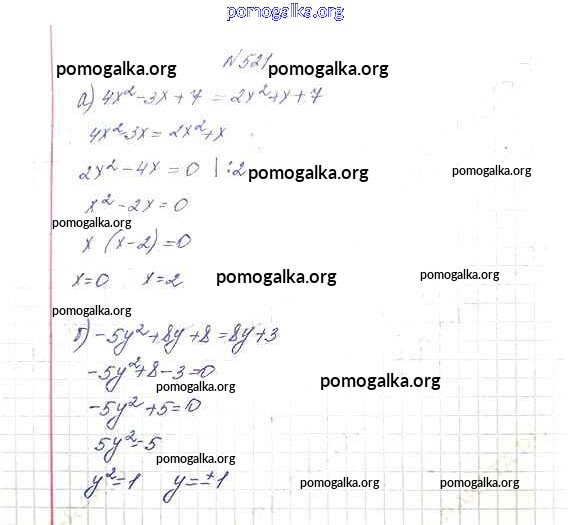 pomogalka.org
N 521
pomogalka.org pomogalka.org
а) 4x²-3x+7 = 2x²+x+7
4x²-3x = 2x²+x
2x²-4x = 0 | :2 pomogalka.org pomogalka.org
x²-2x=0
pomogalka.org
x (x-2)=0
x=0 x=2 pomogalka.org pomogalka.org
pomogalka.org
б) -5y²+8y+8=8y+3
-5y²+8-3=0
pomogalka.org pomogalka.org
-5y²+5=0
5y²=5
pomogalka.org
y²=1 y=±1 pomogalka.org pomogalka.org